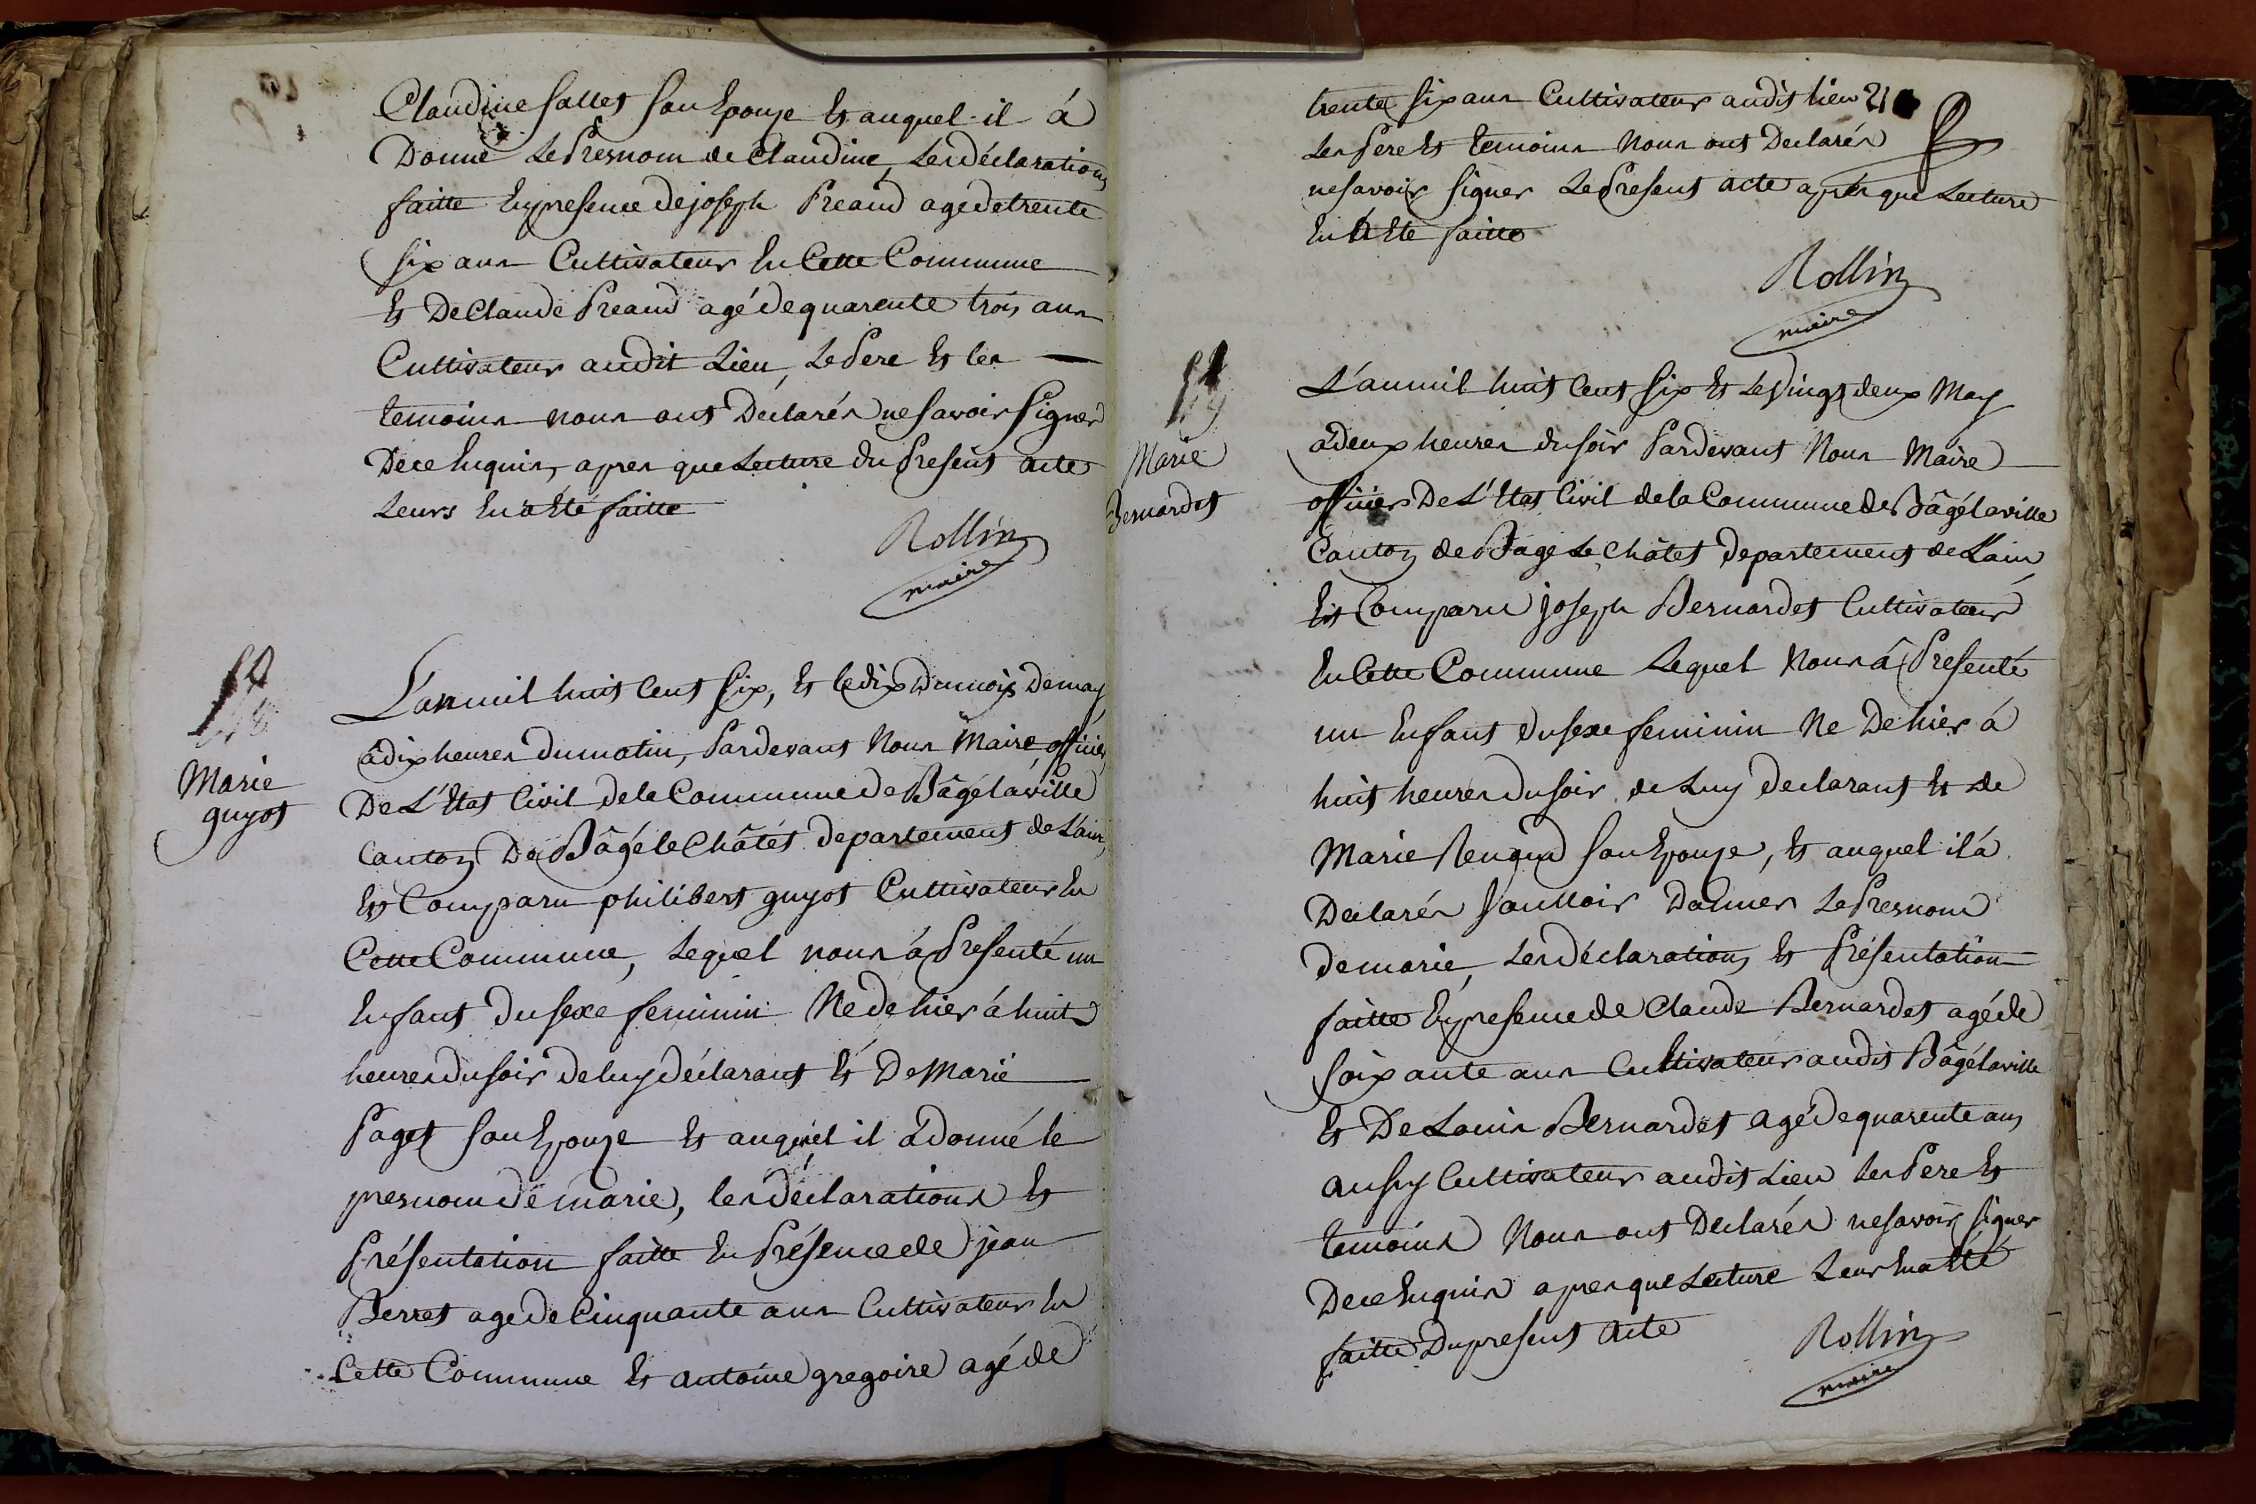 Claudine Sallet Son Epouse Et auquel il à
Donné Le Presnom de Claudine, Les déclarations
faitte En presence de joseph Preaud agé de trente
six ans Cultivateur En Cette Commune
Et De Claude Preaud agé de quarente trois ans
Cultivateur audit Lieu, Le Pere Et les
temoins nous ont Déclarés ne savoir Signer
De ce Enquis, apres que Lecture du Present acte
Leurs En a Eté faitte
Rollin
maire
Marie
guyot
L'an mil huit Cent Six, Et le dix du mois De may
à dix heures du matin, Pardevant Nous Maire, officier
De L'Etat Civil de la Commune de Bâgé laville
Canton De Bâgé le Châtet departement de L'ain,
Est Comparu philibert guyot Cultivateur En
Cette Commune, Lequel nous à Presenté un
Enfant Du sexe feminin Ne de hier à huit
heures du soir de luy déclarant Et De Marie
Paget Son Epouse Et auquel il à donné le
presnom de marie, les déclarations Et
Présentation faitte En Présence de jean
Berret age de Cinquante ans Cultivateur En
Cette Commune Et antoine gregoire agé de
trente six ans Cultivateur audit lieu 21
Les Pere Et temoins Nous ont Declarés
ne savoir signer Le Present acte après que Lecture
En à Eté faitte
Rollin
maire
Marie
Bernardet
L'an mil huit Cent Six Et Le Vingt deux May
à deux heures du soir Pardevant Nous Maire
officier De L'Etat Civil de la Commune de Bâgé laville
Canton de Bagé Le Châtet departement de L'ain
Est Comparu joseph Bernardet Cultivateur
En Cette Commune Lequel Nous à Presenté
un Enfant du sexe feminin Ne De hier à
huit heures du soir de Luy declarant Et de
Marie Son Epouse, Et auquel il à
Declarés Voulloir Donner Le Presnom
de marie, Les déclarations Et Présentation
faitte En presence de Claude Bernardet agé de
soixante ans Cultivateur audit Bâgé laville
Et De Louis Bernardet agé de quarente ans
aussy Cultivateur audit Lieu Les Pere Et
temoins Nous ont Declarés ne savoir signer
De ce Enquis apres que Lecture Leur En a Eté
faitte Du present acte
Rollin
maire